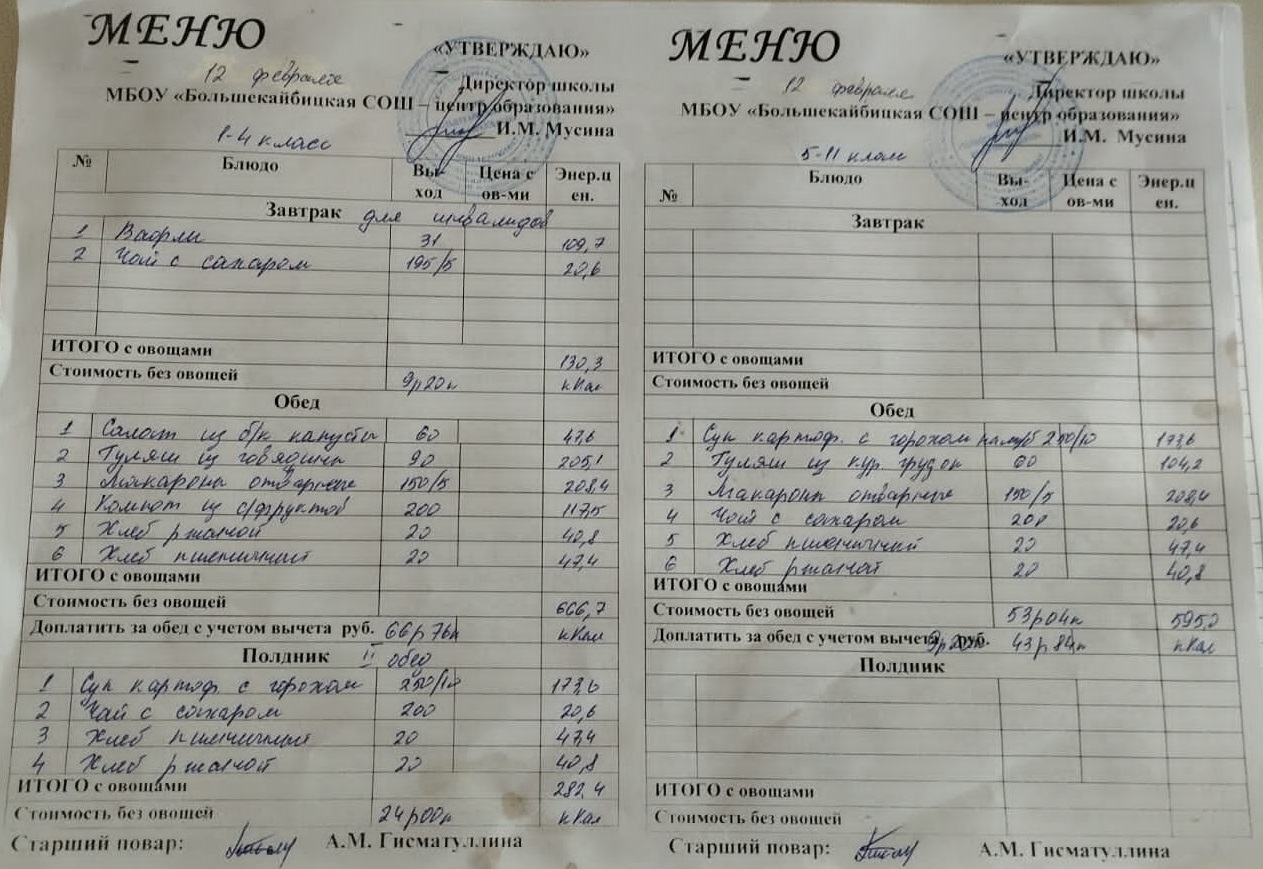 МЕНЮ
«УТВЕРЖДАЮ»
12 февраля
Директор школы
МБОУ «Большекайбицкая СОШ – центр образования»
И.М. Мусина
1-4 класс
№ Блюдо Вы-ход Цена с ов-ми Энер.ц ен.
Завтрак для инвалидов
1 Вафли 31 109,7
2 Чай с сахаром 195/5 20,6
ИТОГО с овощами 130,3
Стоимость без овощей 9р20к кКал
Обед
1 Салат из б/к капусты 60 47,6
2 Гуляш из говядины 90 205,1
3 Макароны отварные 150/5 208,4
4 Компот из с/фруктов 200 117,5
5 Хлеб ржаной 20 40,8
6 Хлеб пшеничный 20 47,4
ИТОГО с овощами
Стоимость без овощей 666,7
Доплатить за обед с учетом вычета руб. 66р76к кКал
Полдник II обед
1 Суп картоф. с горохом 250/10 173,6
2 Чай с сахаром 200 20,6
3 Хлеб пшеничный 20 47,4
4 Хлеб ржаной 20 40,8
ИТОГО с овощами 282,4
Стоимость без овощей 24р00к кКал
Старший повар: А.М. Гисматуллина
МЕНЮ
«УТВЕРЖДАЮ»
12 февраля
Директор школы
МБОУ «Большекайбицкая СОШ – центр образования»
И.М. Мусина
5-11 класс
№ Блюдо Вы-ход Цена с ов-ми Энер.ц ен.
Завтрак
ИТОГО с овощами
Стоимость без овощей
Обед
1 Суп картоф. с горохом 250/10 173,6
2 Гуляш из кур. грудок 60 104,2
3 Макароны отварные 150/5 208,4
4 Чай с сахаром 200 20,6
5 Хлеб пшеничный 20 47,4
6 Хлеб ржаной 20 40,8
ИТОГО с овощами
Стоимость без овощей 53р04к 595,0
Доплатить за обед с учетом вычета 9р20к руб. 43р84к кКал
Полдник
ИТОГО с овощами
Стоимость без овощей
Старший повар: А.М. Гисматуллина